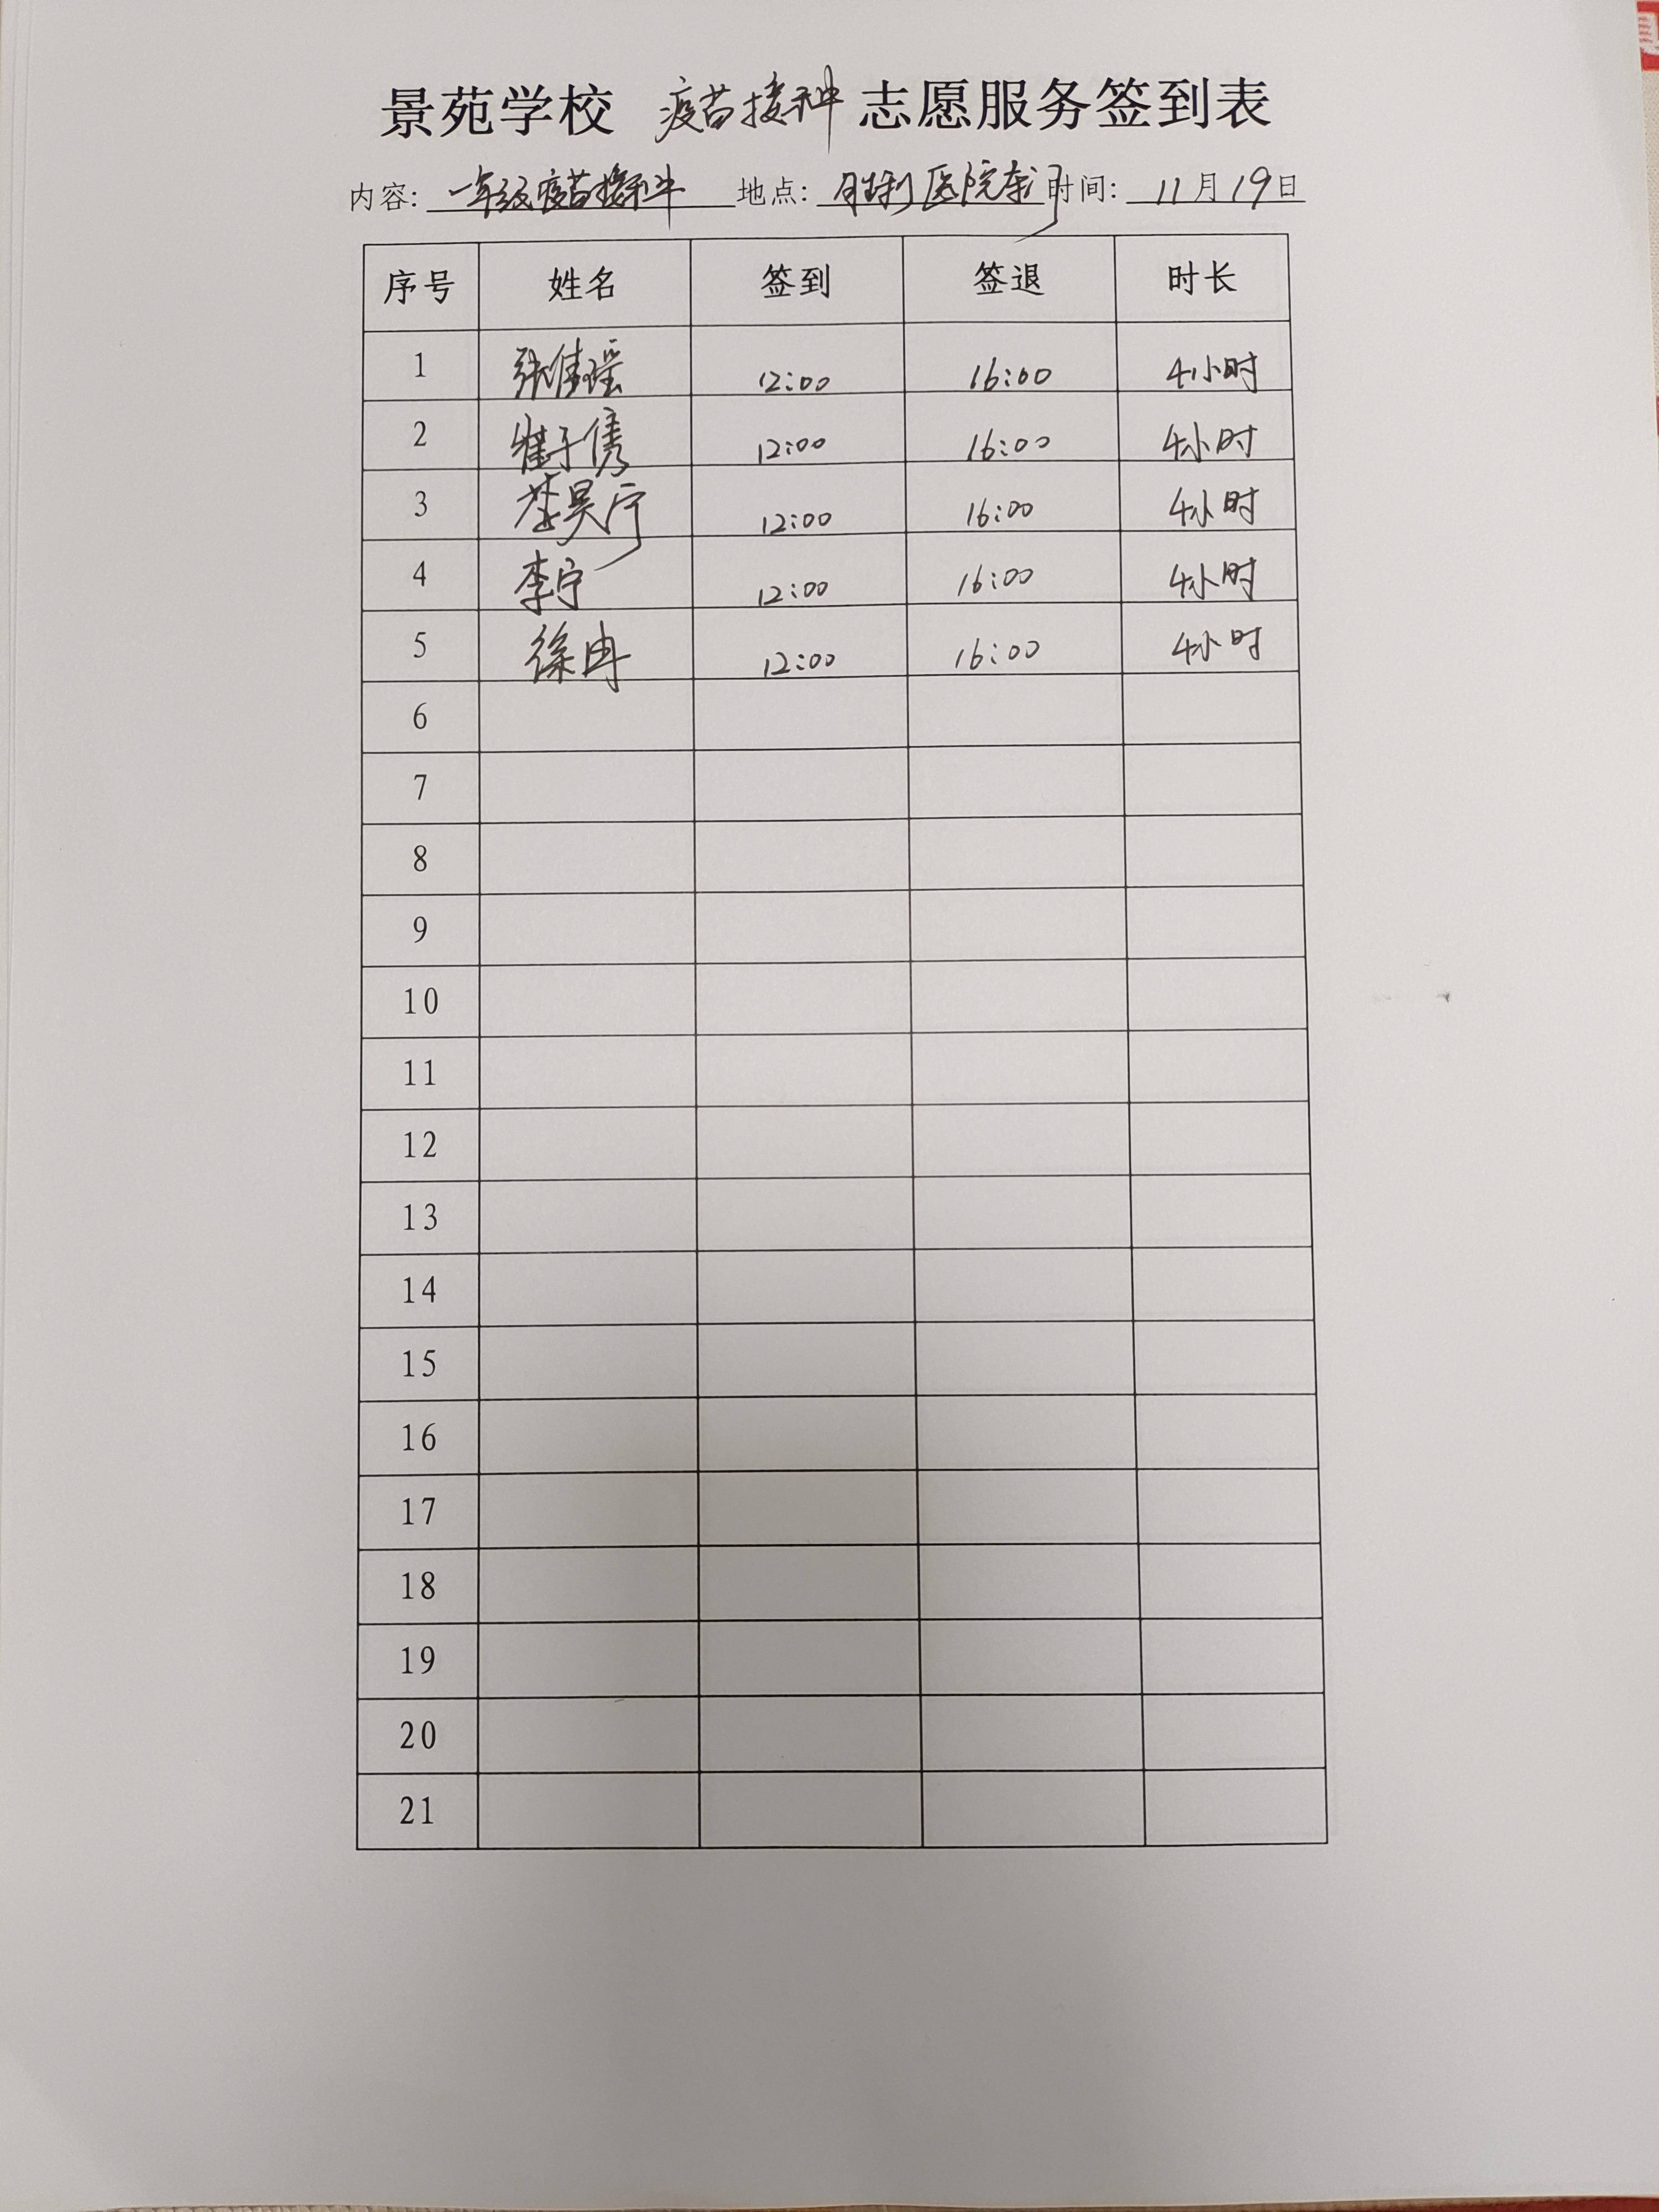 景苑学校 疫苗接种 志愿服务签到表
内容: 一年级疫苗接种 地点: 医院东门 时间: 11月19日
序号 姓名 签到 签退 时长
1 张倩瑶 12:00 16:00 4小时
2 崔子隽 12:00 16:00 4小时
3 昊宁 12:00 16:00 4小时
4 李宁 12:00 16:00 4小时
5 徐冉 12:00 16:00 4小时
6
7
8
9
10
11
12
13
14
15
16
17
18
19
20
21